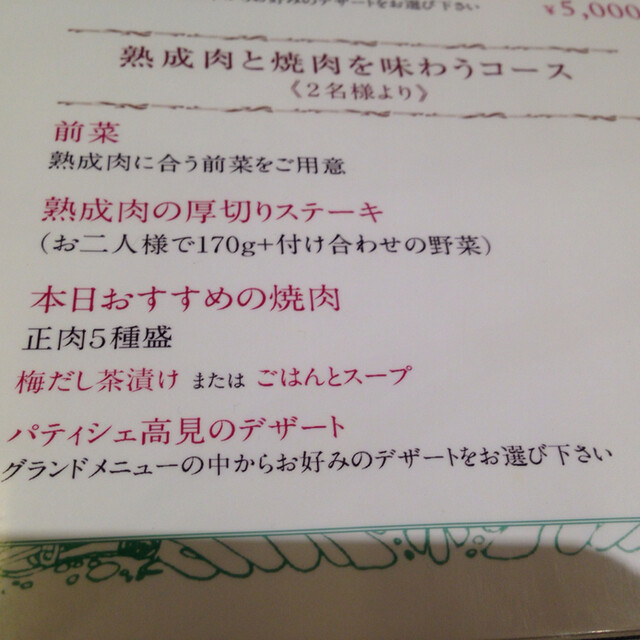 のデザートをお選び下さい
¥5,000
熟成肉と焼肉を味わうコース
《2名様より》
前菜
熟成肉に合う前菜をご用意
熟成肉の厚切りステーキ
(お二人様で170g+付け合わせの野菜)
本日おすすめの焼肉
正肉5種盛
梅だし茶漬け または ごはんとスープ
パティシェ高見のデザート
グランドメニューの中からお好みのデザートをお選び下さい